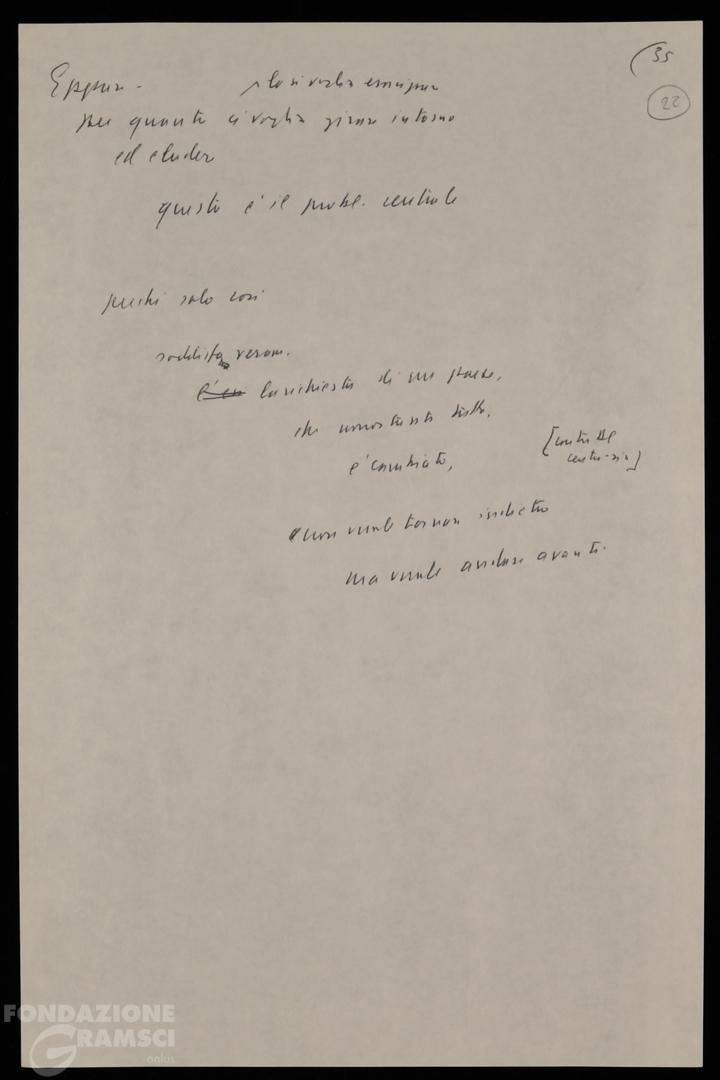 35
22
Eppure - lo si voglia
per quanto ci voglia girare intorno
ed eludere
questo è il probl. centrale
perché solo così
soddisfa veram.
la richiesta di un paese,
che nonostante tutto,
è cambiato,
[contro
centro-sin]
non vuole tornare indietro
ma vuole andare avanti.
FONDAZIONE
GRAMSCI
onlus